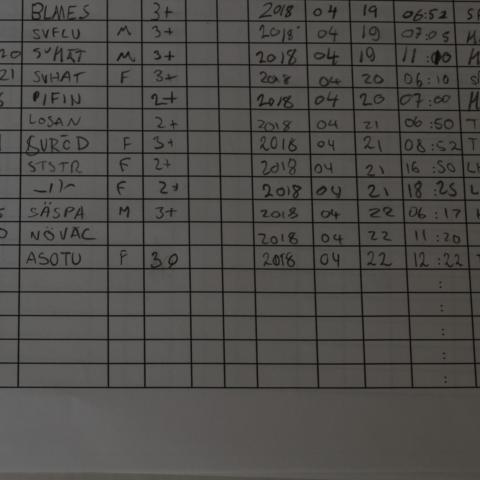 BLMES 3+ 2018 04 19 06:52
SVFLU M 3+ 2018 04 19 07:05
20 SVHÄT M 3+ 2018 04 19 11:10
21 SVHAT F 3+ 2018 04 20 06:10
PIFIN 2+ 2018 04 20 07:00
LOSAN 2+ 2018 04 21 06:50 T
SVRÖD F 3+ 2018 04 21 08:52 T
STSTR F 2+ 2018 04 21 16:50
F 2+ 2018 04 21 18:25
SÄSPA M 3+ 2018 04 22 06:17
NÖVAC 2018 04 22 11:20
ASOTU F 30 2018 04 22 12:22 T
:
:
:
:
: